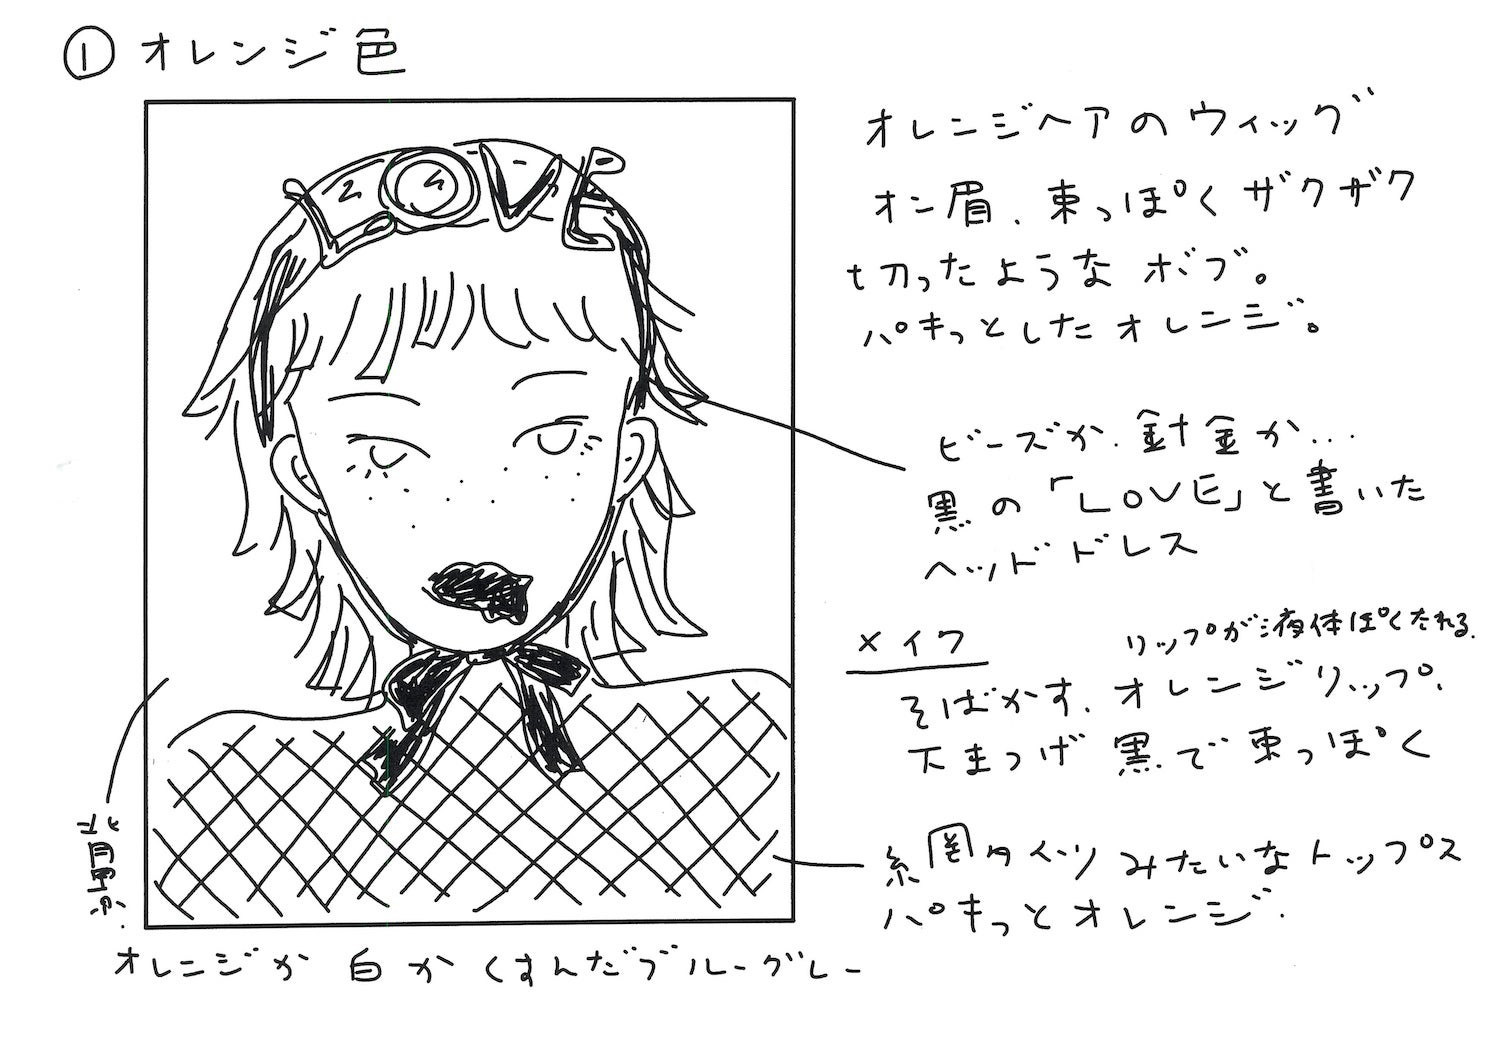 ① オレンジ色
オレンジヘアのウィッグ
オン眉、束っぽくザクザク
切ったようなボブ。
パキっとしたオレンジ。
ビーズか、針金か…
黒の「LOVE」と書いた
ヘッドドレス
メイク
リップが液体ぽくたれる。
そばかす、オレンジリップ、
下まつげ 黒で束っぽく
網タイツみたいなトップス
パキっとオレンジ。
背景
オレンジか 白か くすんだブルーグレー
LOVE